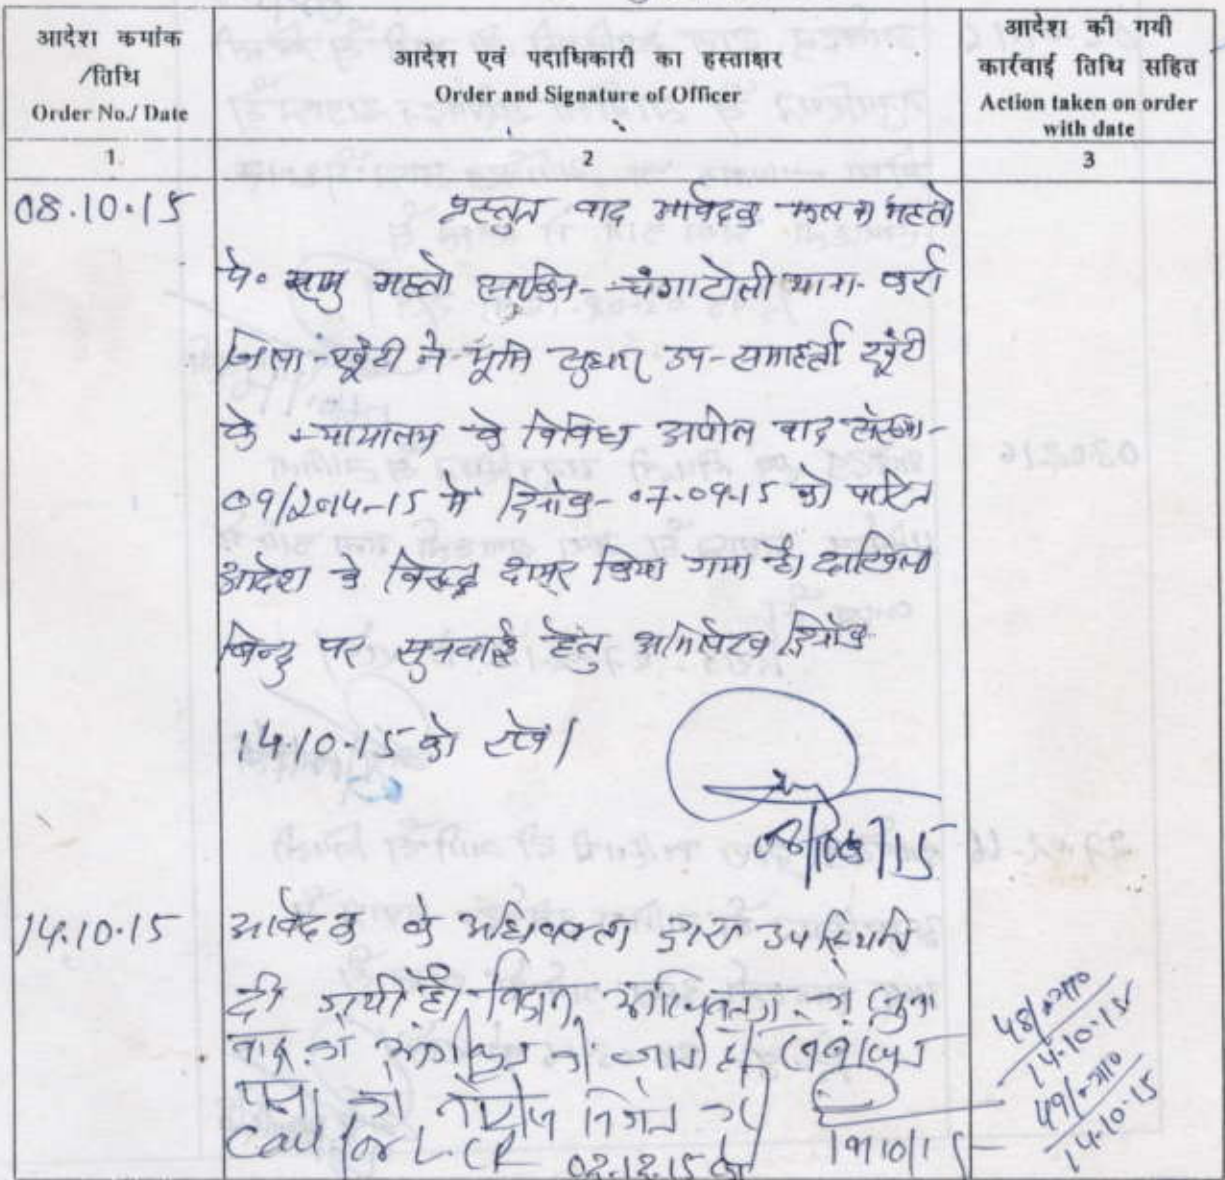 आदेश कमांक
/तिथि
Order No./ Date
आदेश एवं पदाधिकारी का हस्ताक्षर
Order and Signature of Officer
आदेश की गयी
कार्रवाई तिथि सहित
Action taken on order
with date
1
2
3
08.10.15
प्रस्तुत वाद आवेदक महतो
पे० महतो साकिन- चंगाटोली थाना- कर्रा
जिला-खूँटी ने भूमि सुधार उप-समाहर्ता खूँटी
के न्यायालय के विविध अपील वाद संख्या-
09/2014-15 में दिनांक- 07-09-15 को पारित
आदेश के विरूद्ध दायर किया गया है। दाखिला
बिन्दु पर सुनवाई हेतु अभिलेख दिनांक
14.10.15 को रखें।
08/10/15
14.10.15
आवेदक के अधिवक्ता द्वारा उपस्थिति
दी गयी है। विद्वान अधिवक्ता को सुना
वाद को अंगीकृत की जाती है।
को नोटिस निर्गत करें
Call for LCR 02.12.15 को
14/10/15
48/
14.10.15
49/
14.10.15